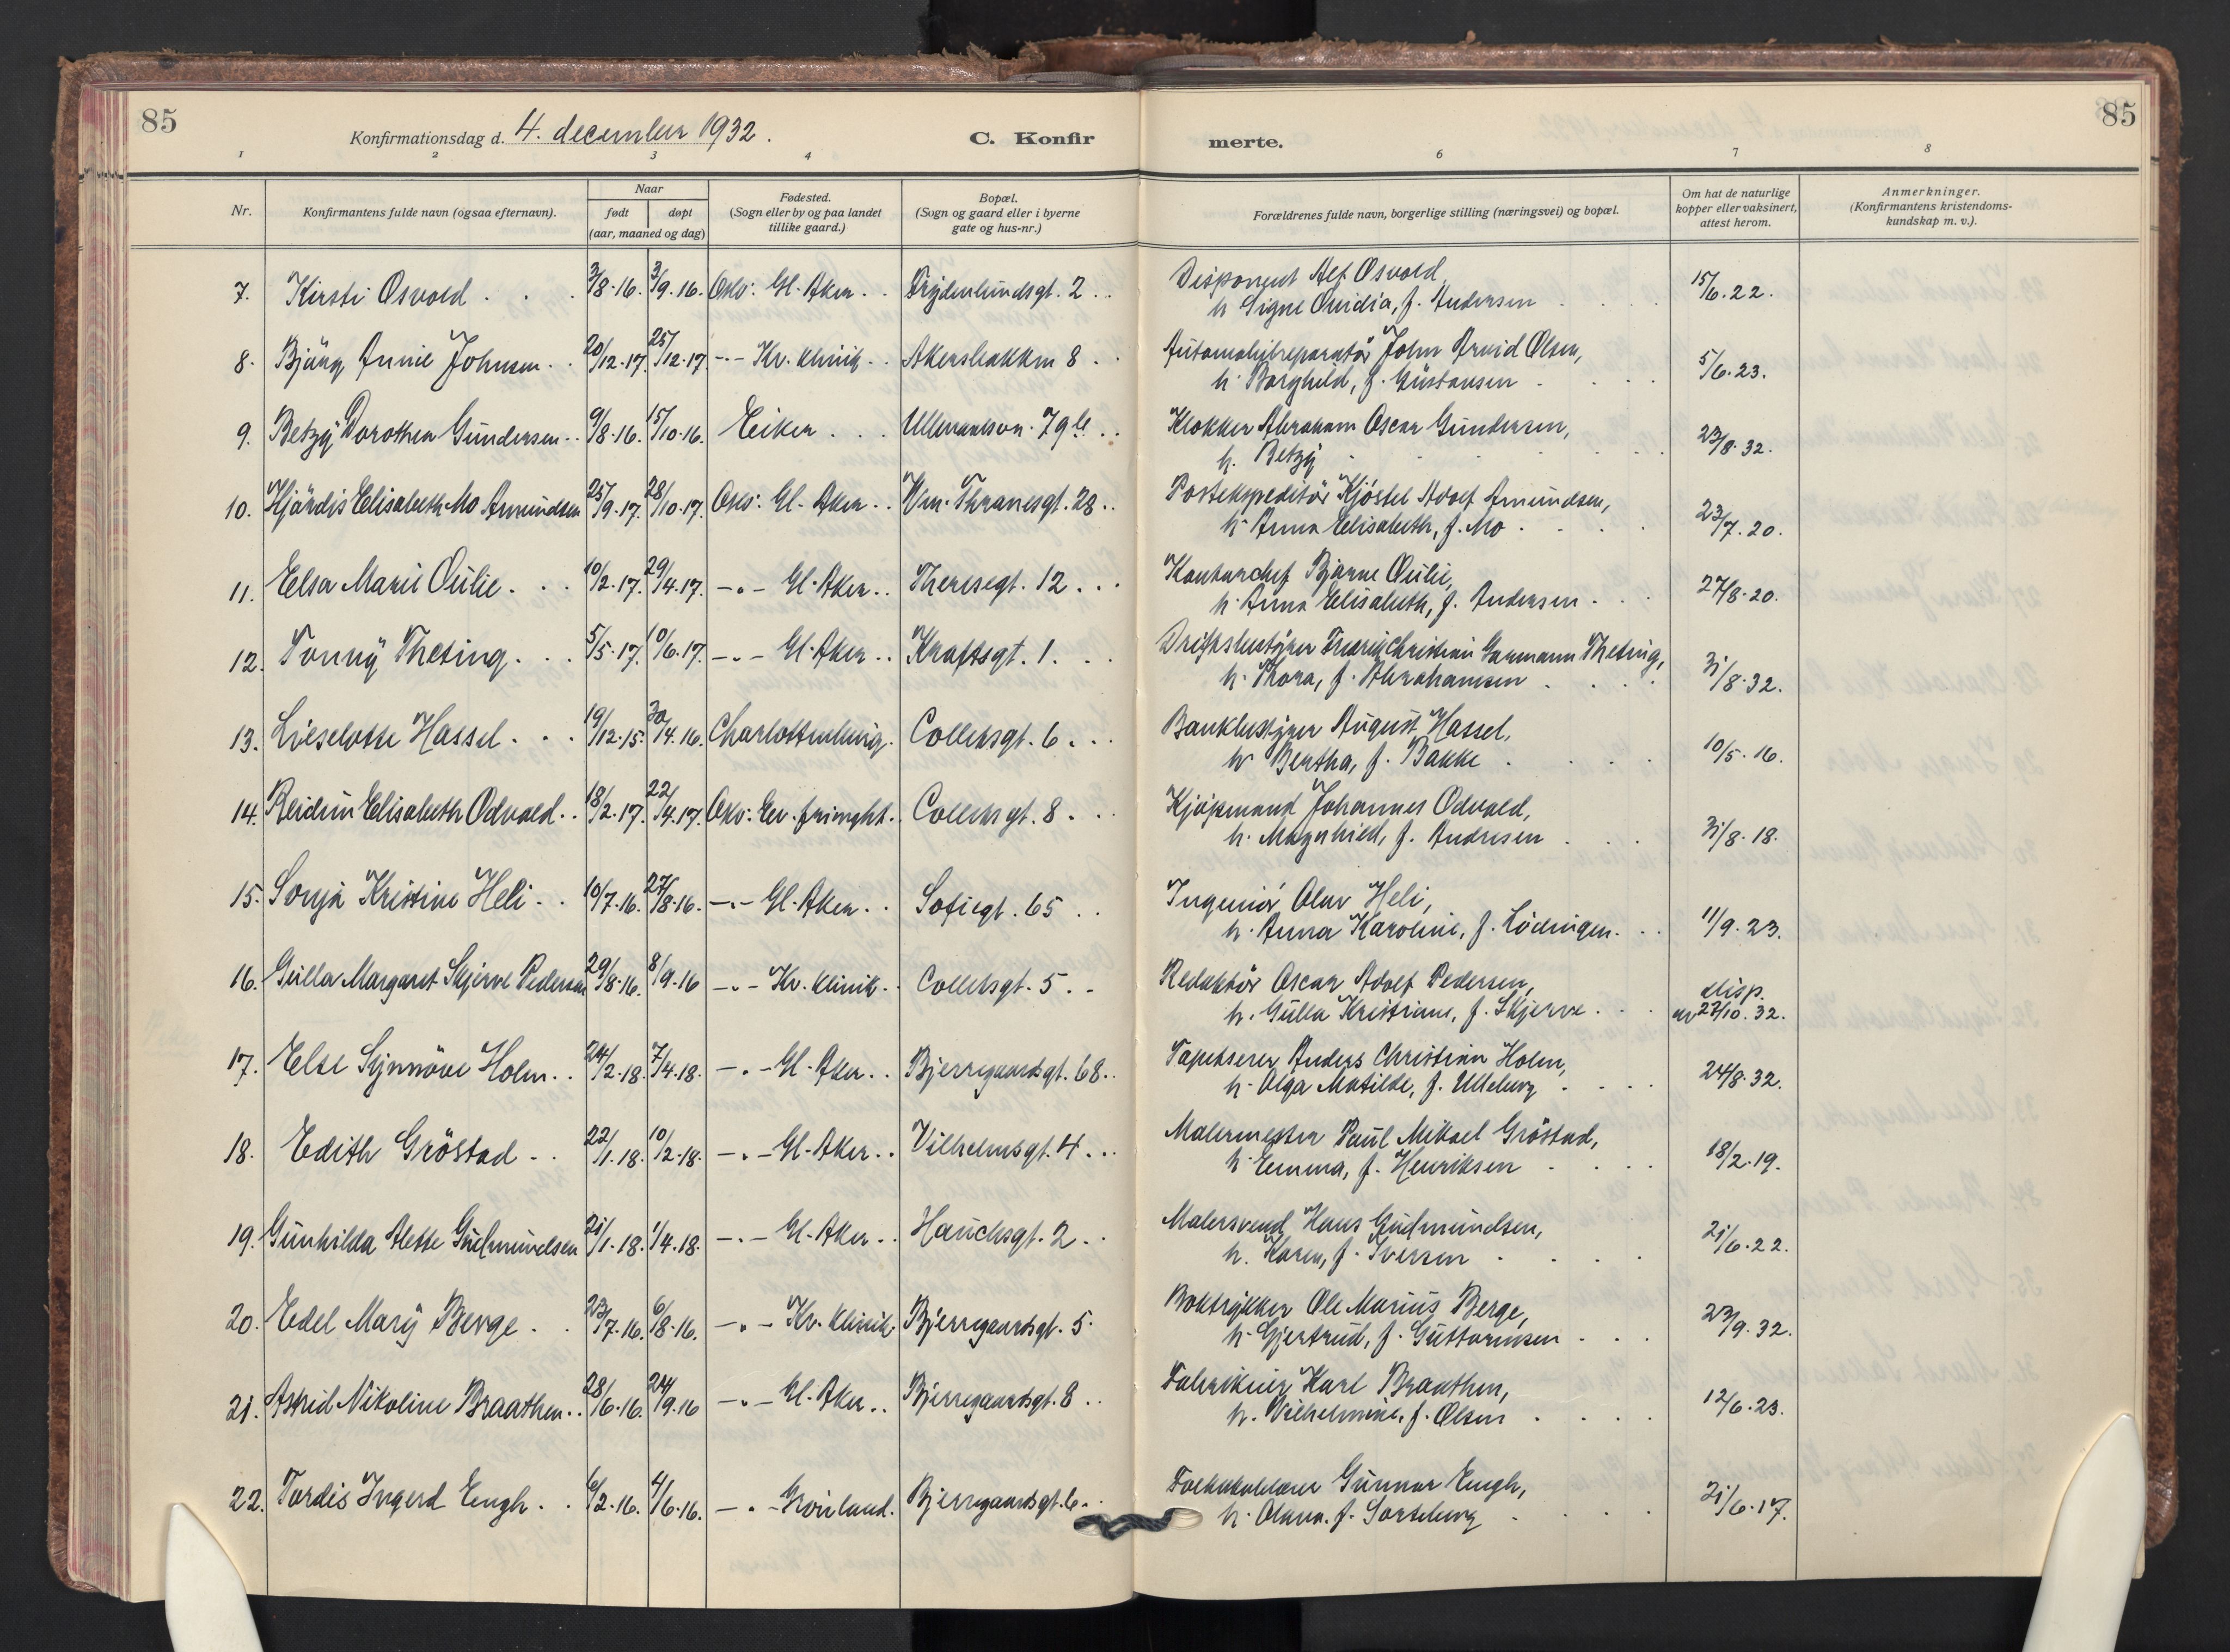 85
Konfirmationsdag d. 4. december 1932.
C. Konfir
merte.
85
1 2 3 4 6 7 8
Nr.
Konfirmantens fulde navn (ogsaa efternavn).
Naar
født døpt
(aar, maaned og dag)
Fødested.
(Sogn eller by og paa landet
tillike gaard.)
Bopæl.
(Sogn og gaard eller i byerne
gate og hus-nr.)
Forældrenes fulde navn, borgerlige stilling (næringsvei) og bopæl.
Om hat de naturlige
kopper eller vaksinert,
attest herom.
Anmerkninger.
(Konfirmantens kristendoms-
kundskap m. v.).
7. Kirsti Osvold . . . 3/8.16. 3/9.16. Oslo: Gl. Aker . . Frydenlundsgt. 2 . .
Disponent Alf Osvold,
h. Signe Ovidia, f. Andersen
15/6.22.
8. Bjärg Annie Johnsen . . 20/12.17. 25/12.17. -.- Kr. klinik . . Akersbakken 8 . .
Automobilreparatör John Arvid Olsen,
h. Borghild, f. Gustavsen
5/6.23.
9. Betzy Dorothea Gundersen . . 9/8.16. 15/10.16. Eiker . . . Ullevaalsvn. 79 b . .
Klokker Abraham Oscar Gundersen,
h. Betzy
23/8.32.
10. Hjördis Elisabeth Mo Amundsen 25/9.17. 28/10.17. Oslo: Gl. Aker . . Vm. Thranesgt. 28 . .
Postekspeditör Kjöstel Adolf Amundsen,
h. Anna Elisabeth, f. Mo
23/7.20.
11. Elsa Marie Oulie . . . 10/2.17. 29/4.17. -.- Gl. Aker . . Theresegt. 12 . . .
Kontorchef Bjarne Oulie,
h. Anna Elisabeth, f. Andersen
27/8.20.
12. Tonny Thesing . . . 5/5.17. 10/6.17. -.- Gl. Aker . . Kraftsgt. 1. . .
Driftsbestyrer Christian Garmann Thesing,
h. Thora, f. Abrahamsen
31/8.32.
13. Lieselotte Hassel . . . 19/12.15. 30/4.16. Charlottenburg. Collettsgt. 6 . . .
Bankbestyrer August Hassel,
h. Bertha, f. Bakke
10/5.16.
14. Reidun Elisabeth Odvald . . 18/2.17. 22/4.17. Oslo: Ev. frimght. Collettsgt. 8 . . .
Kjöpmand Johannes Odvald,
h. Magnhild, f. Andresen
31/8.18.
15. Sonja Kristine Heli . . 10/7.16. 27/8.16. -.- Gl. Aker . . Sofiegt. 65 . .
Ingeniör Olav Heli,
h. Anna Karoline, f. Lödingen.
11/9.23.
16. Gulla Margaret Skjerve Pedersen 29/8.16. 8/9.16 -.- Kr. klinik . . Collettsgt. 5 . .
Redaktör Oscar Adolf Pedersen,
h. Gulla Kristiane, f. Skjerve
disp.
av 27/10.32.
17. Else Synnöve Holm . . 24/2.18. 7/4.18. -.- Gl. Aker . . Bjerregaardsgt. 68 . .
Tapetserer Anders Christian Holm,
h. Olga Matilde, f. Ulleberg
24/8.32.
18. Edith Gröstad . . 22/1.18. 10/2.18. -.- Gl. Aker . . Vilhelmsgt. 4 . . .
Malermester Paul Mikael Gröstad,
h. Emma, f. Henriksen
18/2.19.
19. Gunhilda Alette Gudmundsen 21/1.18. 1/4.18. -.- Gl. Aker . . Hauchsgt. 2 . .
Malersvend Hans Gudmundsen,
h. Karen, f. Iversen
21/6.22.
20. Edel Mary Berge . . 23/7.16. 6/8.16. -.- Kr. klinik. Bjerregaardsgt. 5.
Boktrykker Ole Marius Berge,
h. Gjertrud, f. Guttormsen
23/9.32.
21. Astrid Nikoline Braathen . . 28/6.16. 24/9.16 -.- Gl. Aker . . Bjerregaardsgt. 8 . .
Fabrikeier Karl Braathen,
h. Vilhelmine, f. Olsen
12/6.23.
22. Tordis Ingerd Engh . . 6/2.16. 4/6.16. -.- Grönland. Bjerregaardsgt. 6 . .
Gunnar Engh,
h. Olava, f. Sorteberg
21/6.17.